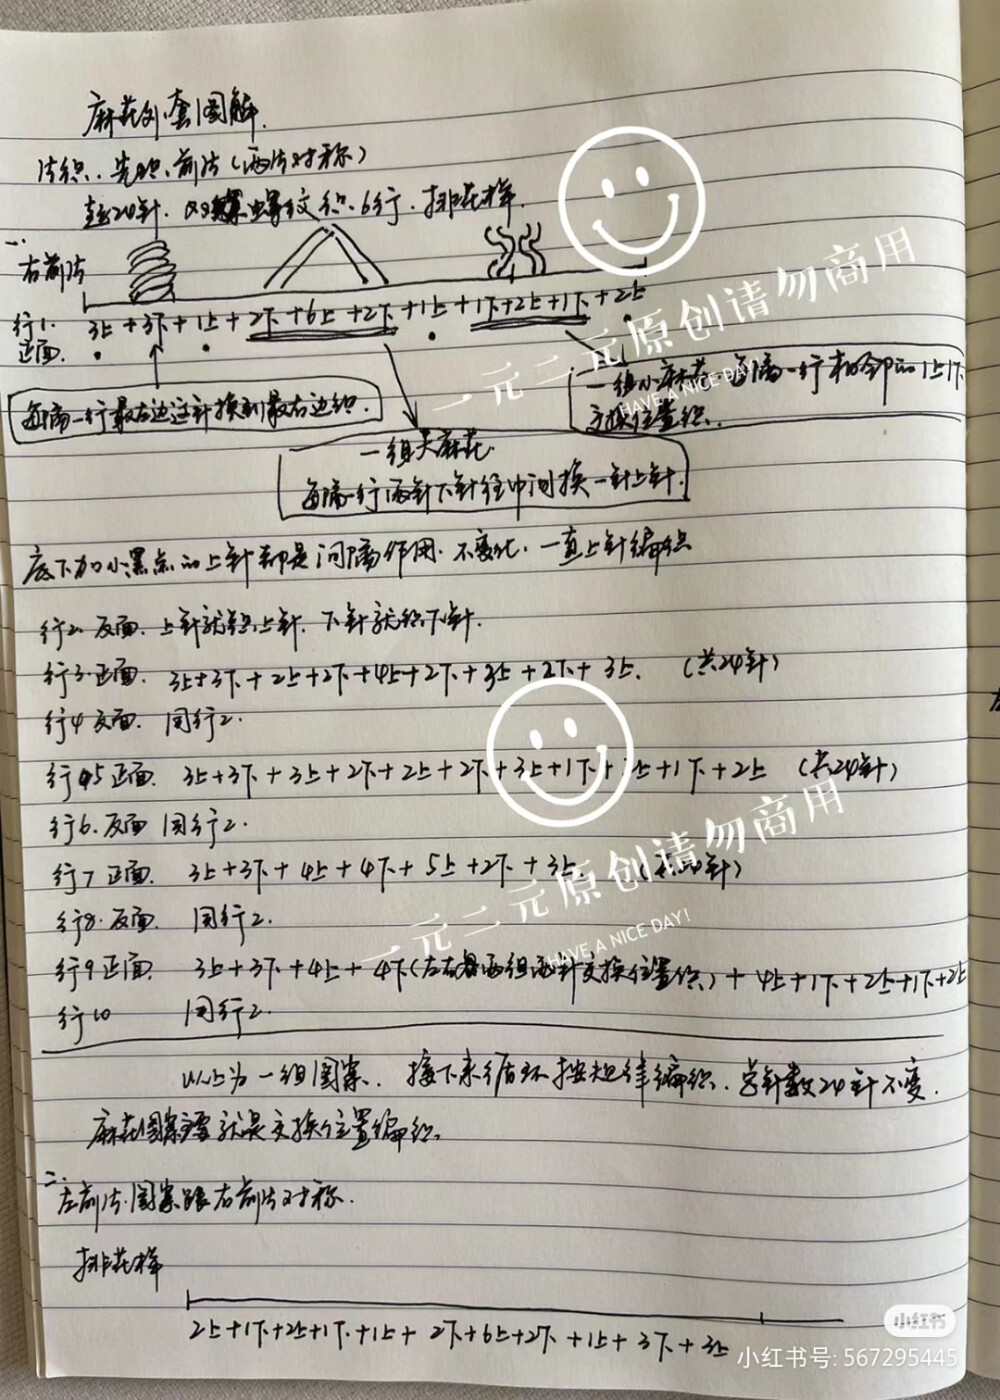 麻花外套图解.
片织、先织、前片(两片对称)
起24针. 双螺纹织.6行. 排花样.
一.
右前片
行1. 3上+3下+1上+2下+6上+2下+1上+1下+2上+1下+2上
正面.
每隔一行最右边这针换到最右边织.
一组小麻花. 每隔一行相邻的1上1下
交换位置织.
一组大麻花.
每隔一行两针下针往中间换一针上针.
底下加小黑点的上针都是间隔作用. 不变化. 一直上针编织
行2. 反面. 上针就织上针. 下针就织下针.
行3.正面. 3上+3下+2上+2下+4上+2下+3上+2下+3上. (共24针)
行4 反面. 同行2.
行5 正面. 3上+3下+3上+2下+2上+2下+3上+1下+ 上+1下+2上 (共24针)
行6. 反面 同行2.
行7 正面. 3上+3下+4上+4下+5上+2下+3上. (共24针)
行8. 反面. 同行2.
行9 正面. 3上+3下+4上+4下(左右两组两针交换位置织)+4上+1下+2上+1下+2上
行10 同行2.
以上为一组图案. 接下来循环按规律编织. 总针数24针不变.
麻花图案主要就是交换位置编织.
二.
左前片.图案跟右前片对称.
排花样
2上+1下+2上+1下+1上+2下+6上+2下+1上+3下+3上
一元二元原创请勿商用
HAVE A NICE DAY!
一元二元原创请勿商用
HAVE A NICE DAY!
小红书
小红书号: 567295445